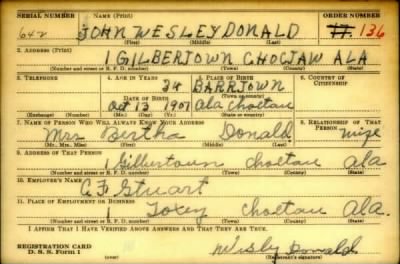 SERIAL NUMBER 1. NAME (Print) ORDER NUMBER
642 JOHN WESLEY DONALD 136
(First) (Middle) (Last)
2. ADDRESS (Print)
1 GILBERTOWN CHOCTAW ALA
(Number and street or R. F. D. number) (Town) (County) (State)
3. TELEPHONE 4. AGE IN YEARS 5. PLACE OF BIRTH 6. COUNTRY OF CITIZENSHIP
34 BARRTOWN
DATE OF BIRTH (Town or county)
Oct 13 1907 Ala choctau
(Exchange) (Number) (Mo.) (Day) (Yr.) (State or country)
7. NAME OF PERSON WHO WILL ALWAYS KNOW YOUR ADDRESS 8. RELATIONSHIP OF THAT PERSON
Mrs Bertha Donald wife
(Mr., Mrs., Miss) (First) (Middle) (Last)
9. ADDRESS OF THAT PERSON
Gilbertown choctau ala
(Number and street or R. F. D. number) (Town) (County) (State)
10. EMPLOYER'S NAME
Stuart
11. PLACE OF EMPLOYMENT OR BUSINESS
Toxey choctau Ala.
(Number and street or R. F. D. number) (Town) (County) (State)
I AFFIRM THAT I HAVE VERIFIED ABOVE ANSWERS AND THAT THEY ARE TRUE.
REGISTRATION CARD
D. S. S. Form 1 Wesly Donald
(Registrant's signature)